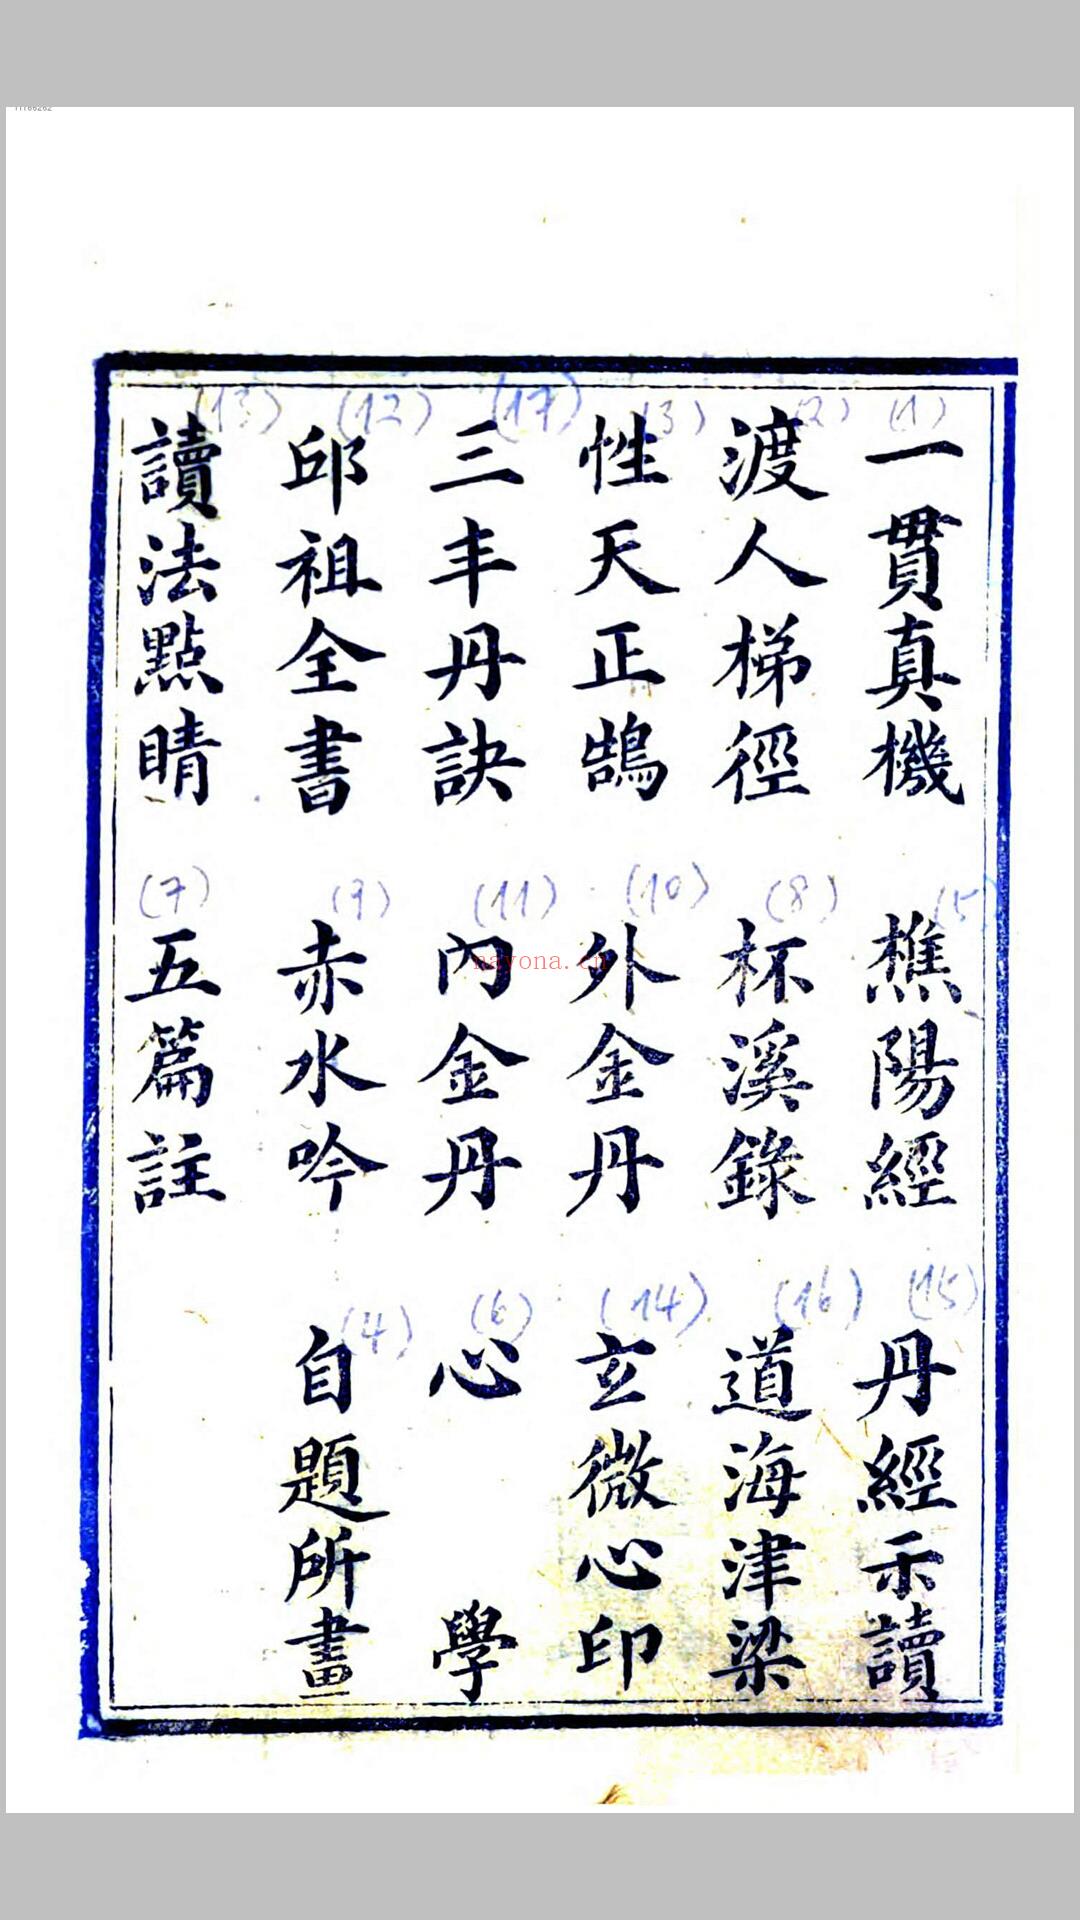 11166262
(1) 一貫真機
(5) 樵陽經
(15) 丹經示讀
(2) 渡人梯徑
(8) 杯溪錄
(16) 道海津梁
(3) 性天正鵠
(10) 外金丹
(14) 玄微心印
(17) 三丰丹訣
(11) 內金丹
(6) 心學
(12) 邱祖全書
(9) 赤水吟
(4) 自題所畫
(13) 讀法點睛
(7) 五篇註
nayona.cn